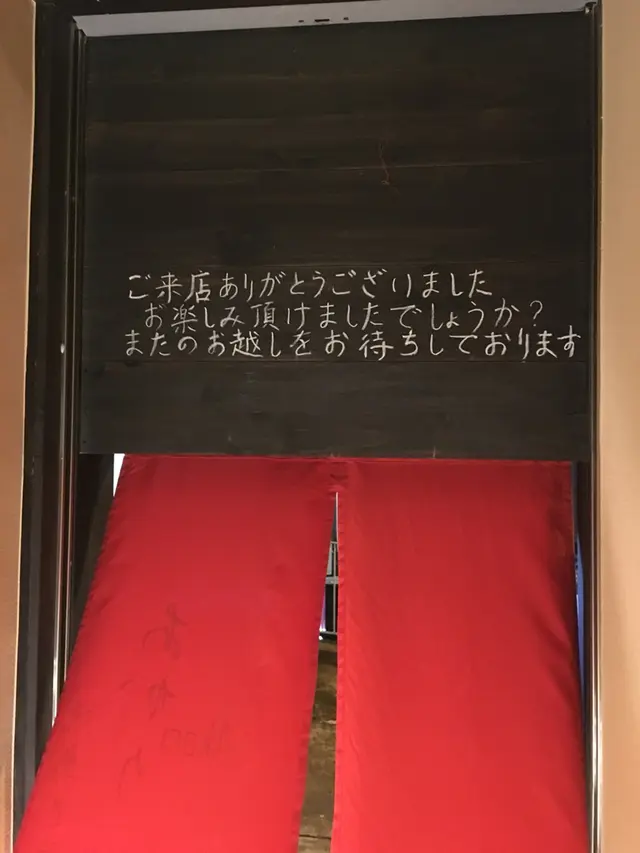 ご来店ありがとうございました
お楽しみ頂けましたでしょうか？
またのお越しをお待ちしております